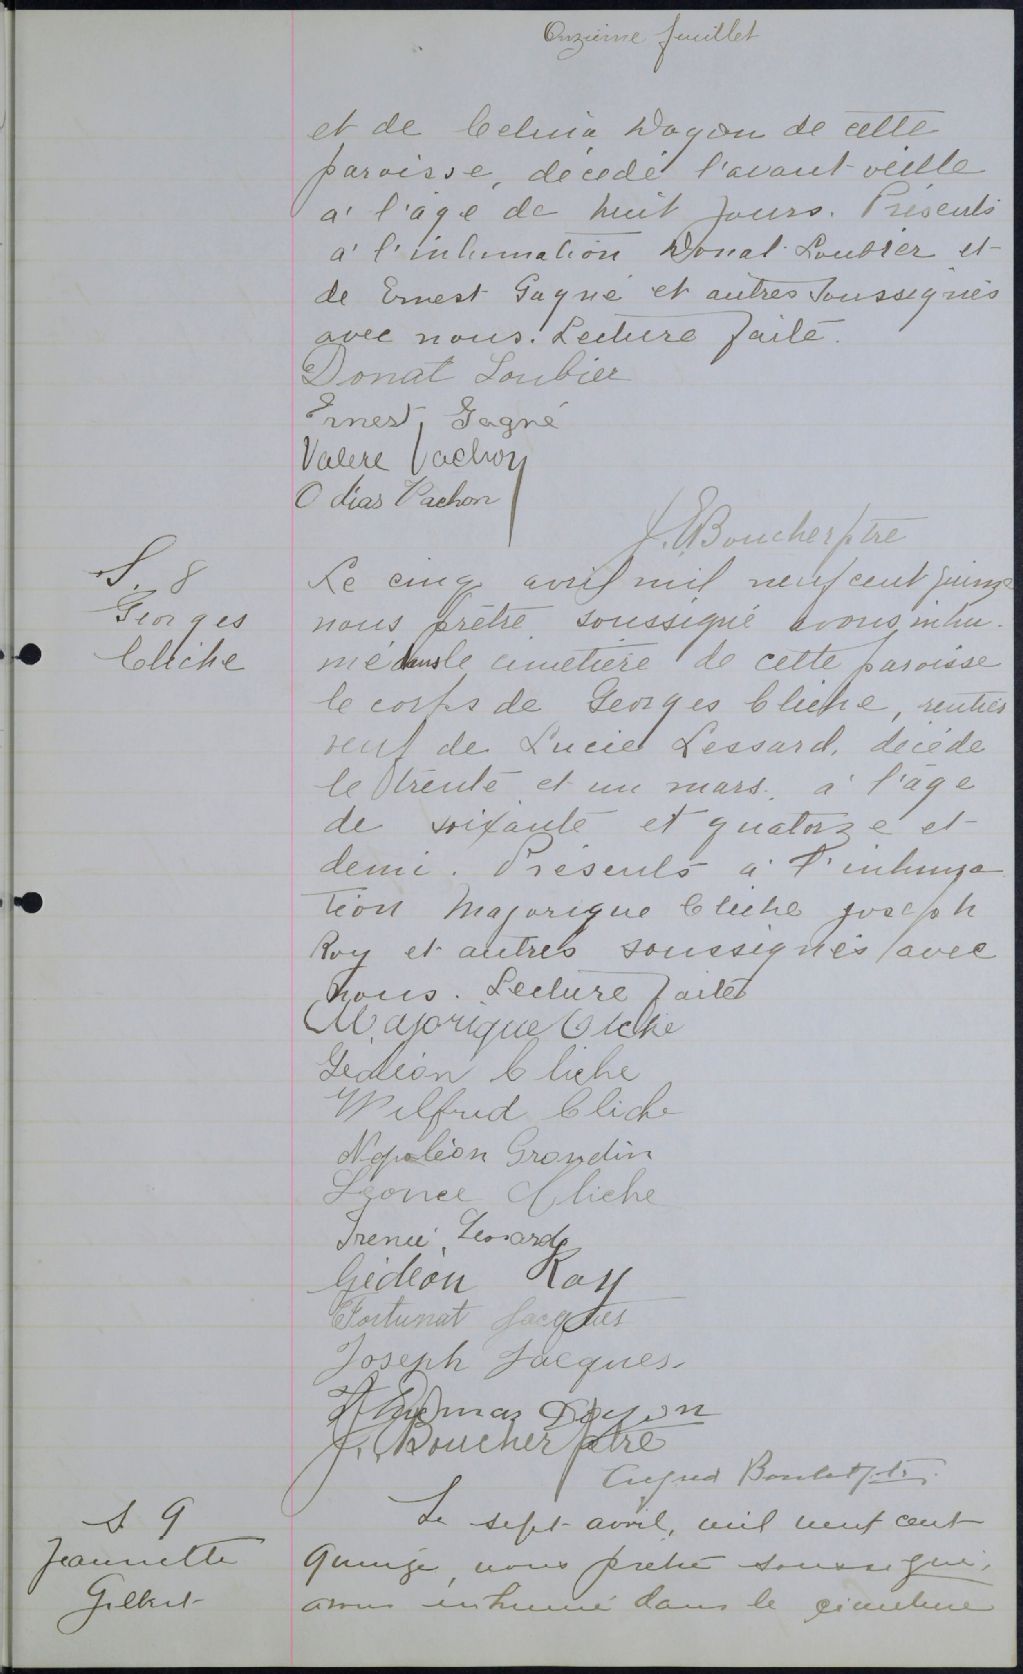 Onzième feuillet
et de Celina Doyon de cette
paroisse, décédé l'avant-veille
à l'âge de huit jours. Présents
à l'inhumation Donat Loubier et
de Ernest Gagné et autres soussignés
avec nous. Lecture faite.
Donat Loubier
Ernest Gagné
Valere Vachon
Odias Vachon
J. E. Boucher ptre
S. 8
Georges
Cliche
Le cinq avril mil neuf cent quinze
nous prêtre soussigné avons inhu-
mé dans le cimetière de cette paroisse
le corps de Georges Cliche, rentier
veuf de Lucie Lessard, décédé
le trente et un mars, à l'âge
de soixante et quatorze et
demi. Présents à l'inhuma
tion Majorique Cliche Joseph
Roy et autres soussignés avec
nous. Lecture faite
Majorique Cliche
Gédéon Cliche
Wilfrid Cliche
Napoléon Grondin
Léonce Cliche
Irenée Lessard
Gédéon Roy
Fortunat Jacques
Joseph Jacques
Thomas Doyon
J. E. Boucher Ptre
S. 9
Jeannette
Gilbert
Le sept avril, mil neuf cent
quinze, nous prêtre soussigné,
avons inhumé dans le cimetière